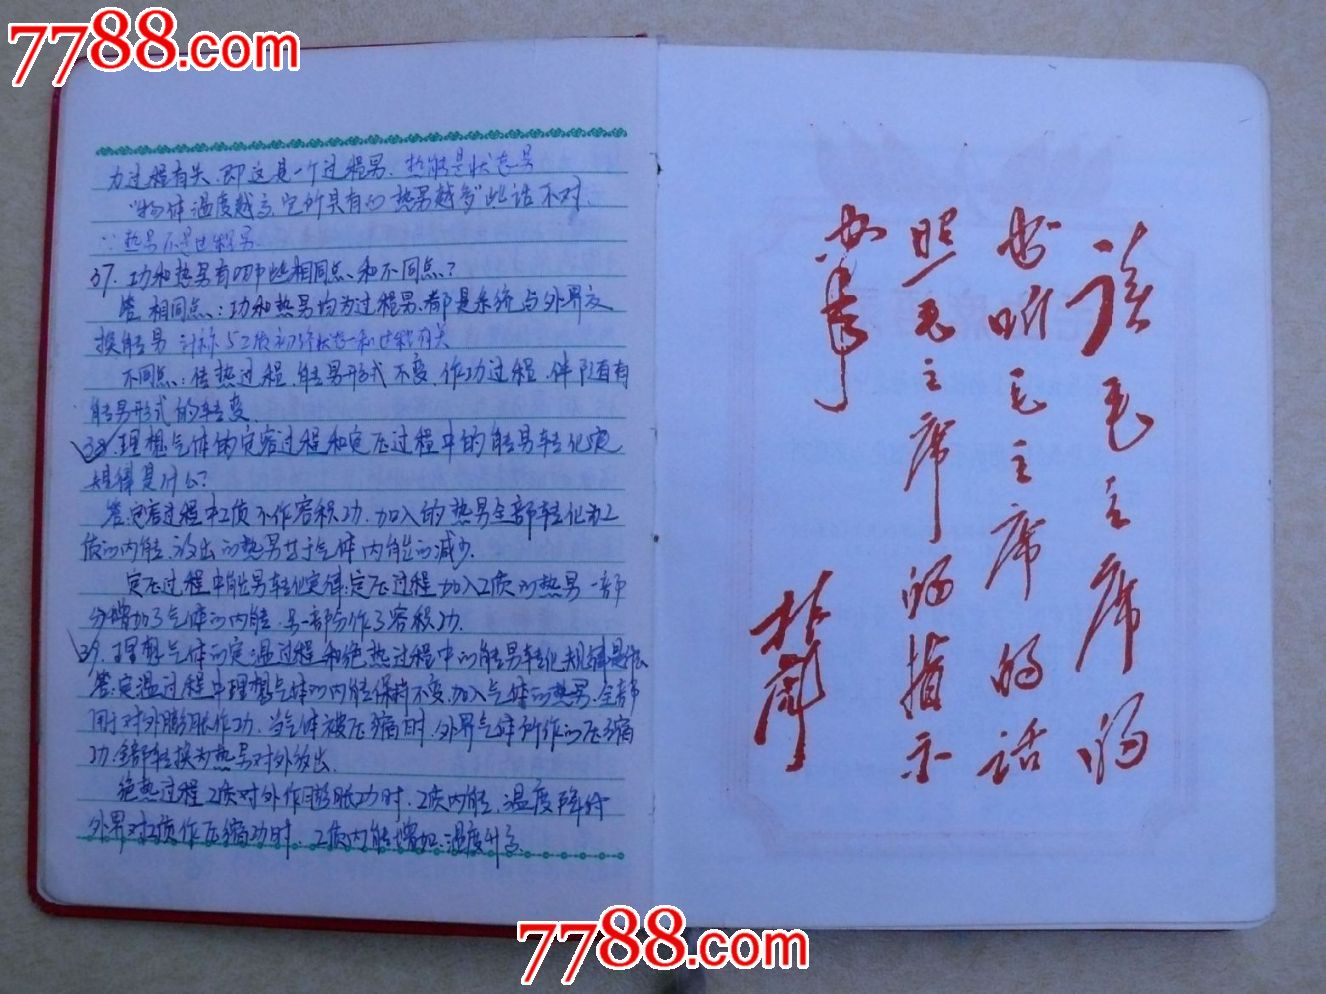 7788.com
为过程有关,即这是一个过程量,热能是状态量
"物体温度越高,它所具有的热量越多"此话不对,
∵热量不是过程量.
37.功和热量有哪些相同点和不同点?
答 相同点:功和热量均为过程量,都是系统与外界交
换能量 与工质初终状态和过程有关
不同点:传热过程,能量形式不变,作功过程,伴随有
能量形式的转变.
38.理想气体的定容过程和定压过程中的能量转化定
规律是什么?
答:定容过程中工质不作容积功,加入的热量全部转化为工
质的内能,放出的热量等于气体内能的减少.
定压过程中能量转化定律:定压过程加入工质的热量一部
分增加了气体的内能,另一部分作了容积功.
39.理想气体的定温过程和绝热过程中的能量转化规律是什么
答:定温过程中理想气体的内能保持不变,加入气体的热量,全部
用于对外膨胀作功,当气体被压缩时,外界气体所作的压缩
功全部转换为热量对外放出.
绝热过程工质对外作膨胀功时,工质内能,温度降低
外界对工质作压缩功时,工质内能增加,温度升高.
读毛主席的
书听毛主席的话
照毛主席的指示
办事
林彪
7788.com